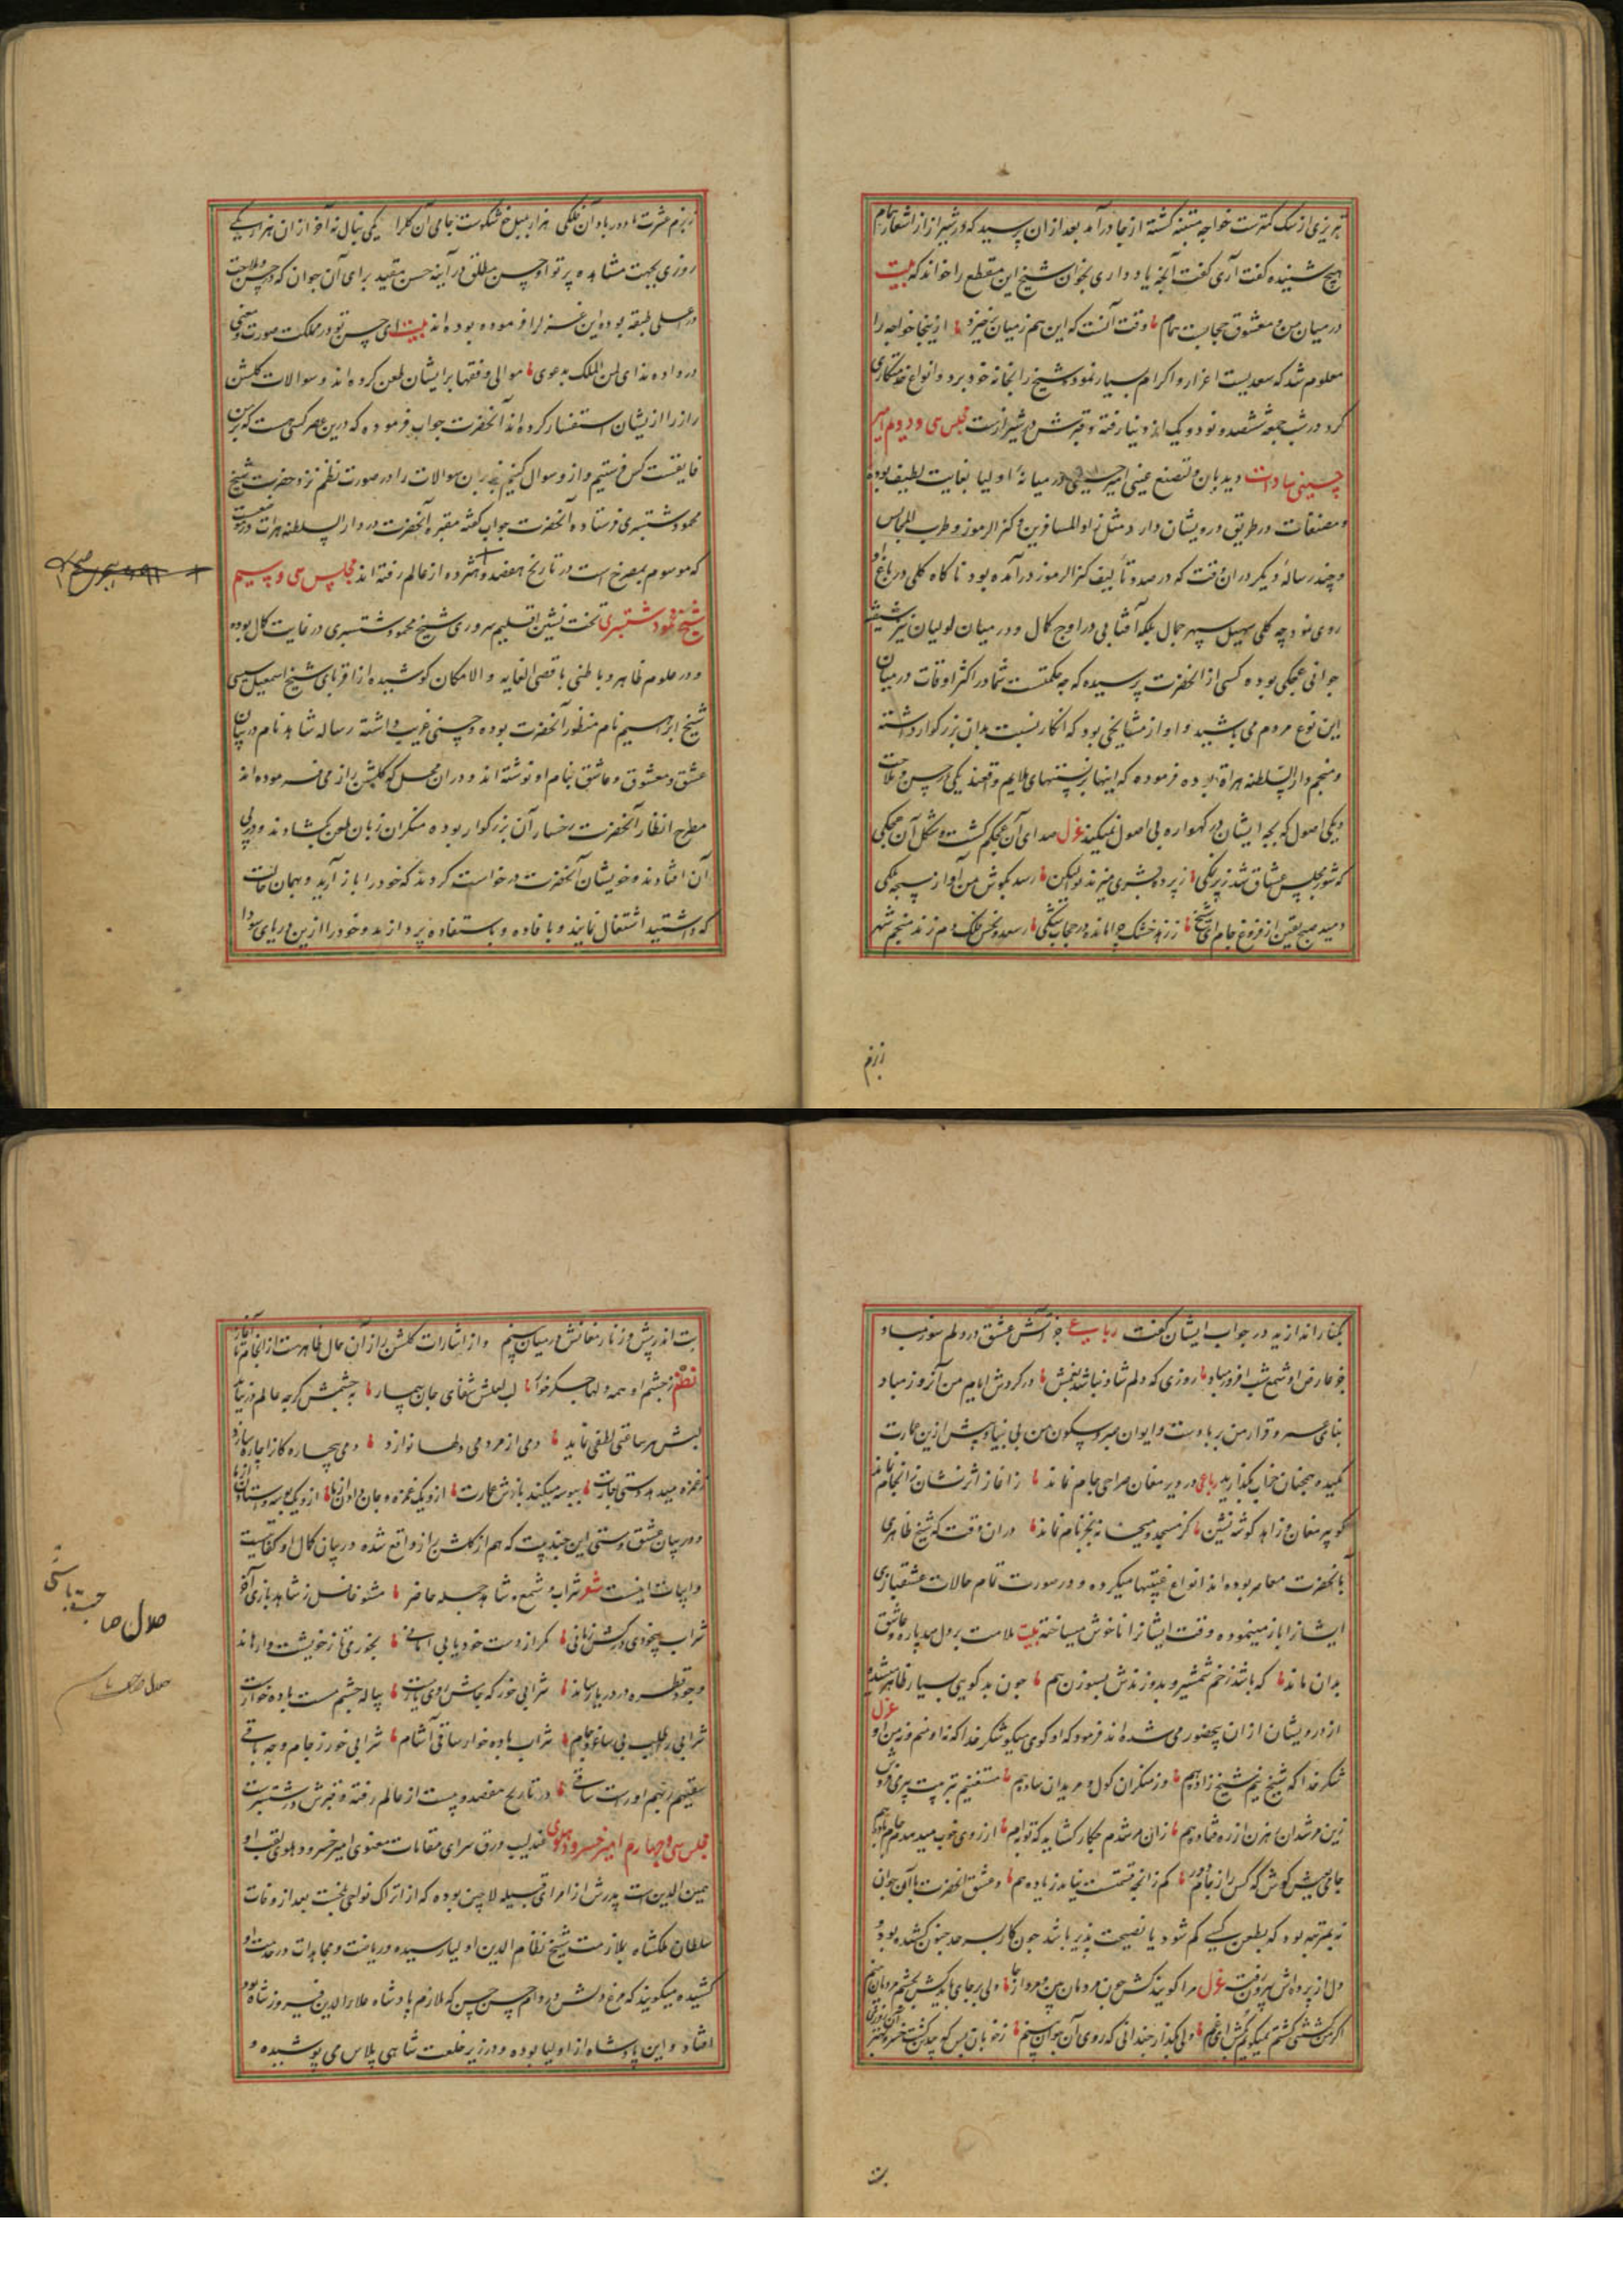 تبریزی از سک کمترست خواجه متنبه کشته از نجا درآمد بعد از ان پرسید که در شیراز از اشعار همام
هیچ شنیده گفت آری گفت آنچه یاد داری بخوان شیخ این مقطع را خواند که بیت
در میان من و معشوق حجابست همام وقت آنست که این هم ز میان برخیزد از ینجا خواجه را
معلوم شد که سعدیست اعزاز و اکرام بسیار نمود و شیخ را بخانه خود برد و انواع خدمتکاری
کرد در شب جمعه ششصد و نود و یک از دنیا رفته و قبرش در شیرازست مجلس سی و دویم امیر
حسینی سادات دیدبان و تصنع عینی امیر حسینی در میانهٔ اولیا بغایت لطیف بوده
و مصنفات در طریق درویشان دارد مثل زاد المسافرین و کنز الرموز و طرب المجالس
و چند رسالهٔ دیکر در ان وقت که در صدد تألیف کنز الرموز درآمده بود ناکاه کلی در باغ او
روی نمود چه کلی سهیل سپهر جمال بلکه آفتابی در اوج کمال و در میان لولیان نیز
جوانی عجکی بوده کسی از انحضرت پرسیده که چه حکمتست شما در اکثر اوقات در میان
این نوع مردم می باشید و او از مشایخی بود که انکار نسبت بدان بزرکوار داشته
و منجم دار السلطنه هراة بوده فرموده که اینها بر نسبتهای ملایم واقعند یکی در حسن و ملاحت
و یکی اصول که بچه ایشان در کهواره بی اصول نمیکنید غزل صدای آن عجکم کشت و شکل آن عجکی
که شور مجلس عشاق شد زیرنکی ز پردهٔ بشری میزند نوا لیکن رسد بکوش من آواز سبحه ملکی
دمید صبح یقین از فروغ جام ای شیخ ز زهد خشک چرا مانده در حجاب شکی ز سعد و نحس فلک دم زند منجم شهر
زبزم
ز بزم عشرت ما دور باد آن فلکی هزار بلبل خوشکوست جامی آن کلرا یکی بنال نه آخر از ان هزار یکی
روزی بجهت مشاهده پرتو او حسن مطلق در آینه حسن مقید برای آن جوان که در حسن و ملاحت
در اعلی طبقه بوده این غزل را فرموده بوده اند بیت ای حسن تو در مملکت صورت و معنی
در داده ندای لمن الملک بدعوی موالی و فقها بر ایشان طعن کرده اند و سوالات کلشن
راز را از یشان استفسار کرده اند آنحضرت جواب فرموده که درین عصر کسی هست که برین
فایقست کس فرستیم و از و سوال کنیم بنابران سوالات را در صورت نظم نزد حضرت شیخ
محمود شبستری فرستاده آنحضرت جواب کفته مقبره آنحضرت در دار السلطنه هرات در
که موسوم بمصرخ است در تاریخ هفصد و هژده از عالم رفته اند مجلس سی و سیم
شیخ محمود شبستری تخت نشین اقلیم سروری شیخ محمود شبستری در غایت کمال بوده
و در علوم ظاهر و باطنی باقصی الغایه و الامکان کوشیده از اقربای شیخ اسمعیل سیسی
شیخ ابراهیم نام منظور آنحضرت بوده و حسنی غریب داشته رساله شاهد نام در بیان
عشق و معشوق و عاشق بنام او نوشته اند و در ان محل که کلشن راز می فرموده اند
مطرح انظار آنحضرت رخسار آن بزرکوار بوده منکران زبان طعن بکشادند و در پی
آن افتادند و خویشان آنحضرت درخواست کردند که خود را باز آرید و بهمان حالت
که داشتید اشتغال نمایند و بافاده و استفاده پردازید و خود را ازین دریای سودا
بکنار اندازید در جواب ایشان گفت رباعی جز آتش عشق در دلم سوز مباد
جز عارض او شمع شب افروز مباد روزی که دلم شاد نباشد بغمش در کردش ایام من آنروز مباد
بنای صبر و قرار من بر باد است و ایوان صبر و سکون من بی بنیاد پیش ازین عمارت
مکنید و همچنان خراب بکذارید رباعی در دیر مغان صراحی و جام نماند ز آغاز اثر نشان ز انجام نماند
کو پیر مغان و زاهد کوشه نشین کز مسجد و میخانه بجز نام نماند در ان وقت که شیخ ظاهری
بآنحضرت معاصر بوده اند انواع غیبتها میکرده و در صورت تمام حالات عشقبازی
ایشانرا باز مینموده و وقت ایشانرا ناخوش میساخته بیت ملامت بر دل صد پاره عاشق
بدان ماند که باشد زخم شمشیر و بدوزندش بسوزن هم چون بدکویی بسیار ظاهر میشده
از درویشان از ان بیحضوری می شده اند فرمود که او کوی میکو شکر خدا که نه او منم و نه من او غزل
شکر خدا که شیخ نیم شیخ زاده هم وز منکران کول و مریدان ساده هم مستغنیم ز تربیت پیر می فروش
زین مرشدان رهزن از ره فتاده هم زان مرشدم چکار کشاید که توبه ام از روی خوب میدهد و جام باده هم
جامی بپیش کوش که کس را ز جام دور کم زانچه قسمتست نیاید زیاده هم و عشق انحضرت باآن جوان
نه بمرتبه بود که بطعن کسی کم شود یا نصیحت پذیر باشد چون کار بسرحد جنون کشیده بود و
دل از پرده اش بیرون رفت غزل مرا کویند کش چون مردمان بین و مرو از جا
بت
بت اندر پیش و زنار مغانش در میان بینم و از اشارات کلشن راز آن حال ظاهرست از انجام تا آغاز
نظم ز چشم او همه دلها جکرخوار لب لعلش شفای جان بیمار به چشمش کرچه عالم در نیاید
لبش هر ساعتی لطفی نماید دمی از مردمی دلها نوازد دمی بیچاره کانرا چاره سازد
و در بیان عشق و مستی این چند بیت که هم از کلشن راز واقع شده در بیان کمال او کفایت
و ابیات اینست شعر شراب و شمع و شاهد جمله حاضر مشو غافل ز شاهد بازی آخر
شراب بیخودی درکش زمانی مکر از دست خود یابی امانی بخور می تا ز خویشت وا رهاند
وجود قطره در دریا رساند شرابی خور که جامش روی یارست پیاله چشم مست باده خوارست
شرابی را طلب بی ساغر و جام شراب باده خوار ساقی آشام شرابی خور ز جام وجه باقی
سقیهم ربهم او راست ساقی در تاریخ هفصد و بیست از عالم رفته و قبرش در شبسترست
مجلس سی و چهارم امیر خسرو دهلوی عندلیب ورق سرای مقامات معنوی امیر خسرو دهلوی لقب او
یمین الدین ست پدرش از امرای قبیله لاچین بوده که از اتراک نواحی بلخست بعد از وفات
سلطان ملکشاه بملازمت شیخ نظام الدین اولیا رسیده و ریاضت و مجاهدات در خدمت او
کشیده میکویند که مرغ دلش در دام حسن حسن که ملازم پادشاه علاء الدین فیروز شاه بود
افتاد و این پادشاه از اولیا بوده و در زیر خلعت شاهی پلاس می پوشیده و